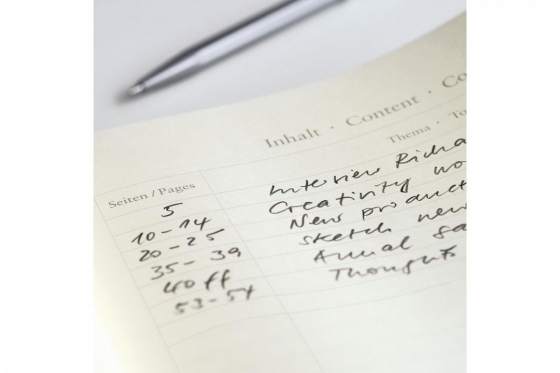 Inhalt · Content · Co
Thema · To
Seiten / Pages
5 Interview Richa
10-14 Creativity wo
20-25 New product
35-39 sketch new
40 ff Annual sa
53-54 Thoughts